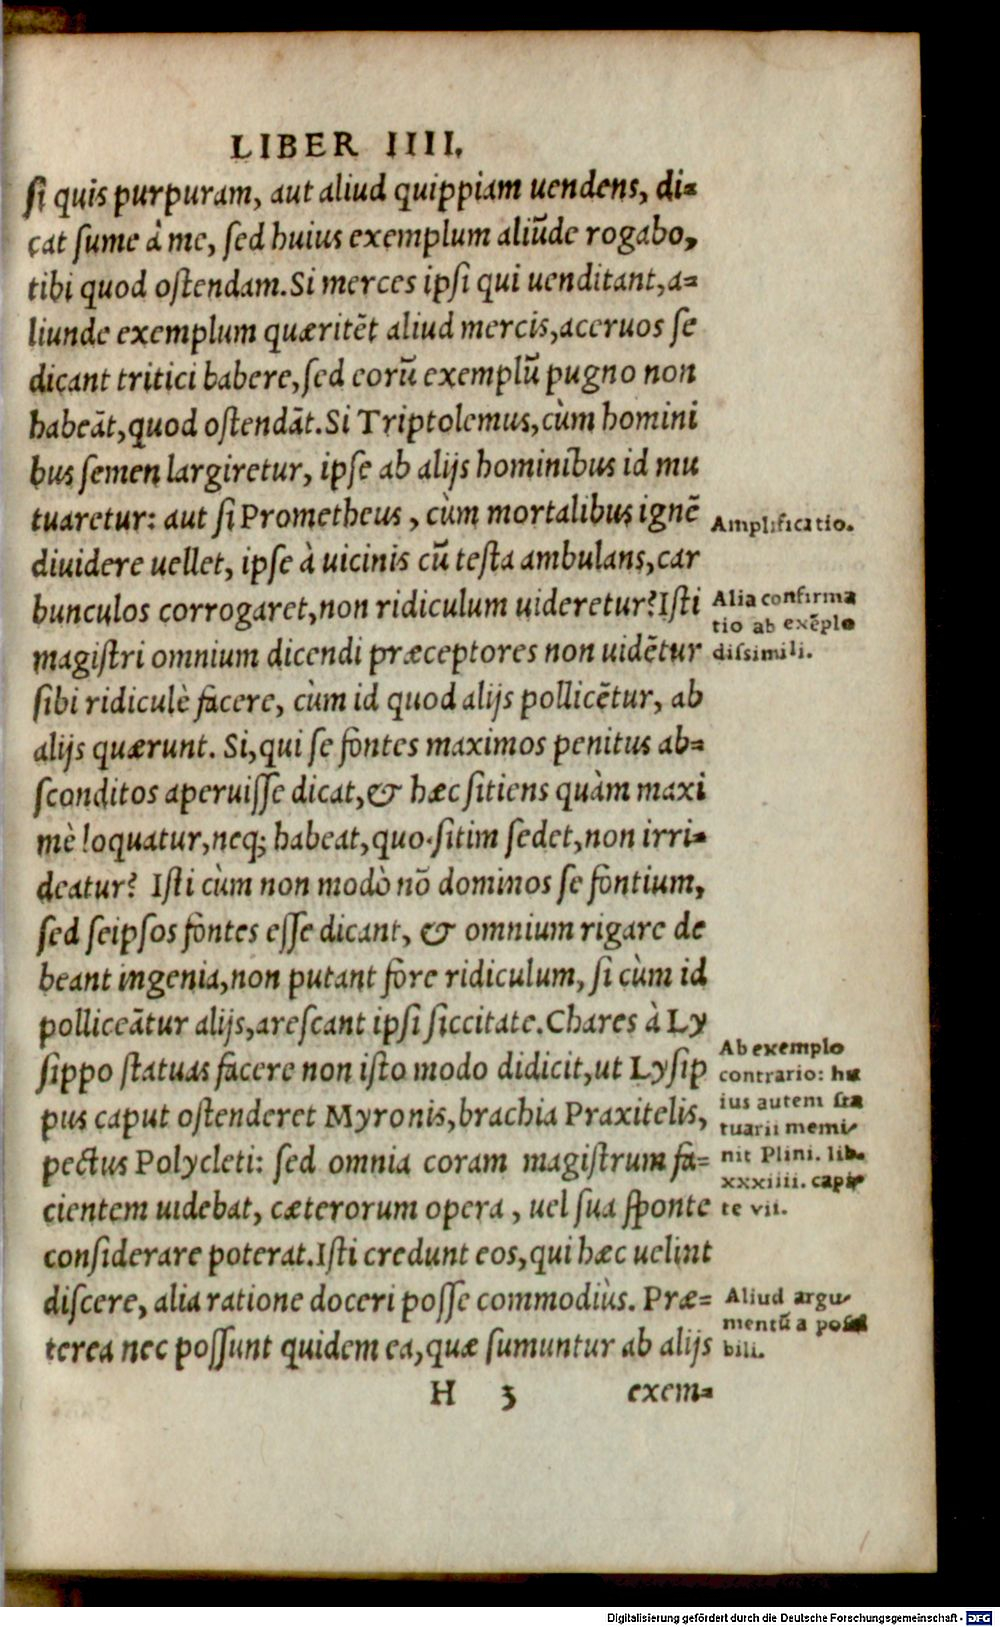 LIBER IIII.
si quis purpuram, aut aliud quippiam uendens, di-
cat sume à me, sed huius exemplum aliūde rogabo,
tibi quod ostendam. Si merces ipsi qui uenditant, a-
liunde exemplum quæritēt aliud mercis, aceruos se
dicant tritici habere, sed eorū exemplū pugno non
habeāt, quod ostendāt. Si Triptolemus, cùm homini
bus semen largiretur, ipse ab alijs hominibus id mu
tuaretur: aut si Prometheus, cùm mortalibus ignē
Amplificatio.
diuidere uellet, ipse à uicinis cū testa ambulans, car
bunculos corrogaret, non ridiculum uideretur? Isti
magistri omnium dicendi præceptores non uidētur
Alia confirma
tio ab exēplo
dissimili.
sibi ridiculè facere, cùm id quod alijs pollicētur, ab
alijs quærunt. Si, qui se fontes maximos penitus ab-
sconditos aperuisse dicat, & hæc sitiens quàm maxi
mè loquatur, neq; habeat, quo sitim sedet, non irri-
deatur? Isti cùm non modò nō dominos se fontium,
sed seipsos fontes esse dicant, & omnium rigare de
beant ingenia, non putant fore ridiculum, si cùm id
polliceātur alijs, arescant ipsi siccitate. Chares à Ly
sippo statuas facere non isto modo didicit, ut Lysip
pus caput ostenderet Myronis, brachia Praxitelis,
pectus Polycleti: sed omnia coram magistrum fa-
cientem uidebat, cæterorum opera, uel sua sponte
Ab exemplo
contrario: hu
ius autem sta
tuarii memi-
nit Plini. lib.
xxxiiii. capi-
te vii.
considerare poterat. Isti credunt eos, qui hæc uelint
discere, alia ratione doceri posse commodiùs. Præ-
terea nec possunt quidem ea, quæ sumuntur ab alijs
Aliud argu-
mentū a possi
bili.
H 3 exem-
Digitalisierung gefördert durch die Deutsche Forschungsgemeinschaft - DFG